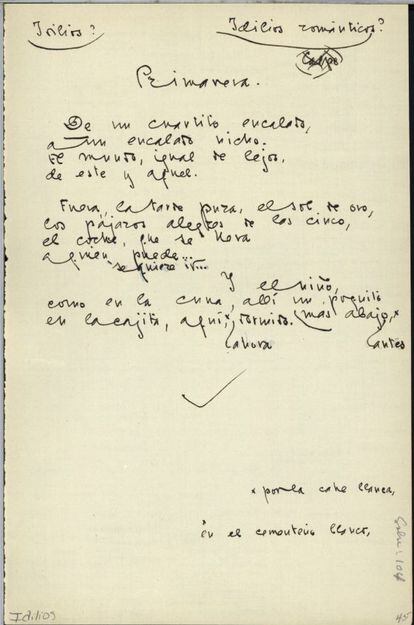 Idilios?
Idilios románticos?
Primavera.
De un cuartito encalado,
a un encalado nicho.
El mundo, igual de lejos,
de este y aquel.
Fuera, la tarde pura, el sol de oro,
los pájaros alegres de las cinco,
el coche, que se lleva
a quien puede...
se quiere ir...
Y el niño,
como en la cuna, allí un poquito
en la cajita, aquí,x dormido. más abajo,x
ahora
antes
x por la calle llana,
en el cementerio blanco,
Idilios
45